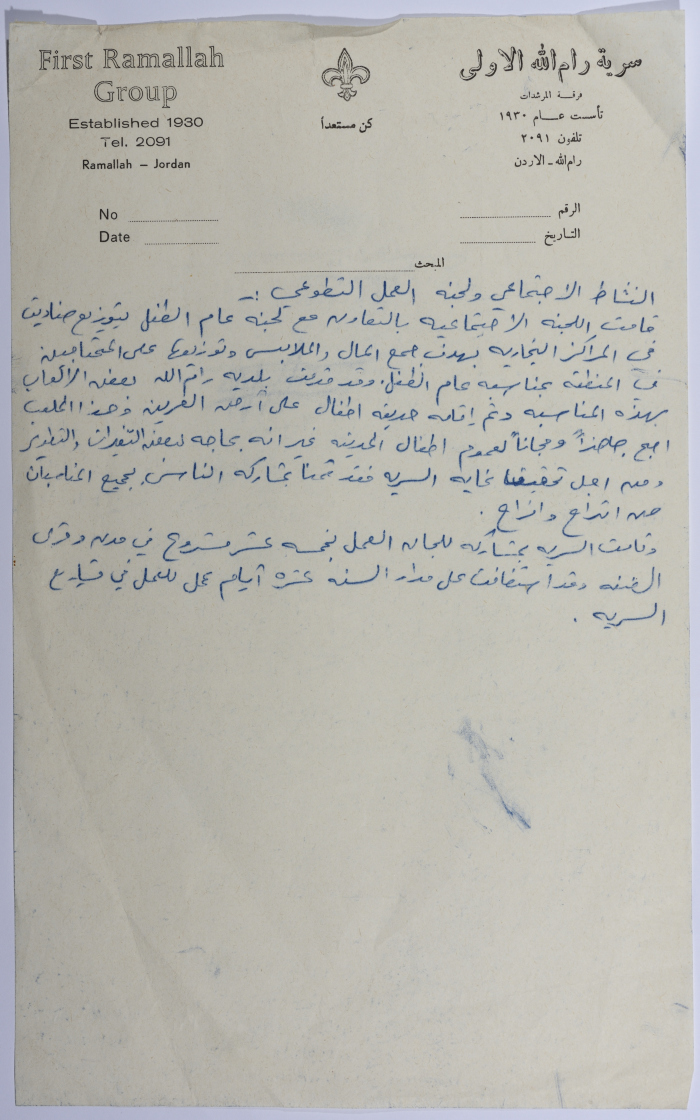 First Ramallah
Group
Established 1930
Tel. 2091
Ramallah – Jordan
كن مستعداً
سرية رام الله الاولى
فرقة المرشدات
تأسست عام ١٩٣٠
تلفون ٢٠٩١
رام الله - الاردن
No
Date
الرقم
التاريخ
المبحث
النشاط الاجتماعي ولجنه العمل التطوعي :-
قامت اللجنه الاجتماعيه بالتعاون مع لجنه عام الطفل بتوزيع صناديق
في المراكز التجاريه بهدف جمع المال والملابس وتوزيعها على المحتاجين
في المنطقه بمناسبه عام الطفل. وقد بلديه رام الله بعض الالعاب
بهذه المناسبه وتم إقامه حديقه اطفال على أرض وهذا الملعب
اصبح جاهزاً ومجاناً لعموم اطفال المدينه غير انه بحاجه لبعض التغيرات والتطوير
ومن اجل تحقيق غايه السريه فقد قمنا بمشاركه الناس بجميع المناسبات
من اتراح وافراح .
وقامت السريه بمشاركه للجان العمل بخمسه عشر مشروع في مدن وقرى
الضفه وقد استضافت على مدار السنه عشره أيام عمل للعمل في مشاريع
السريه .